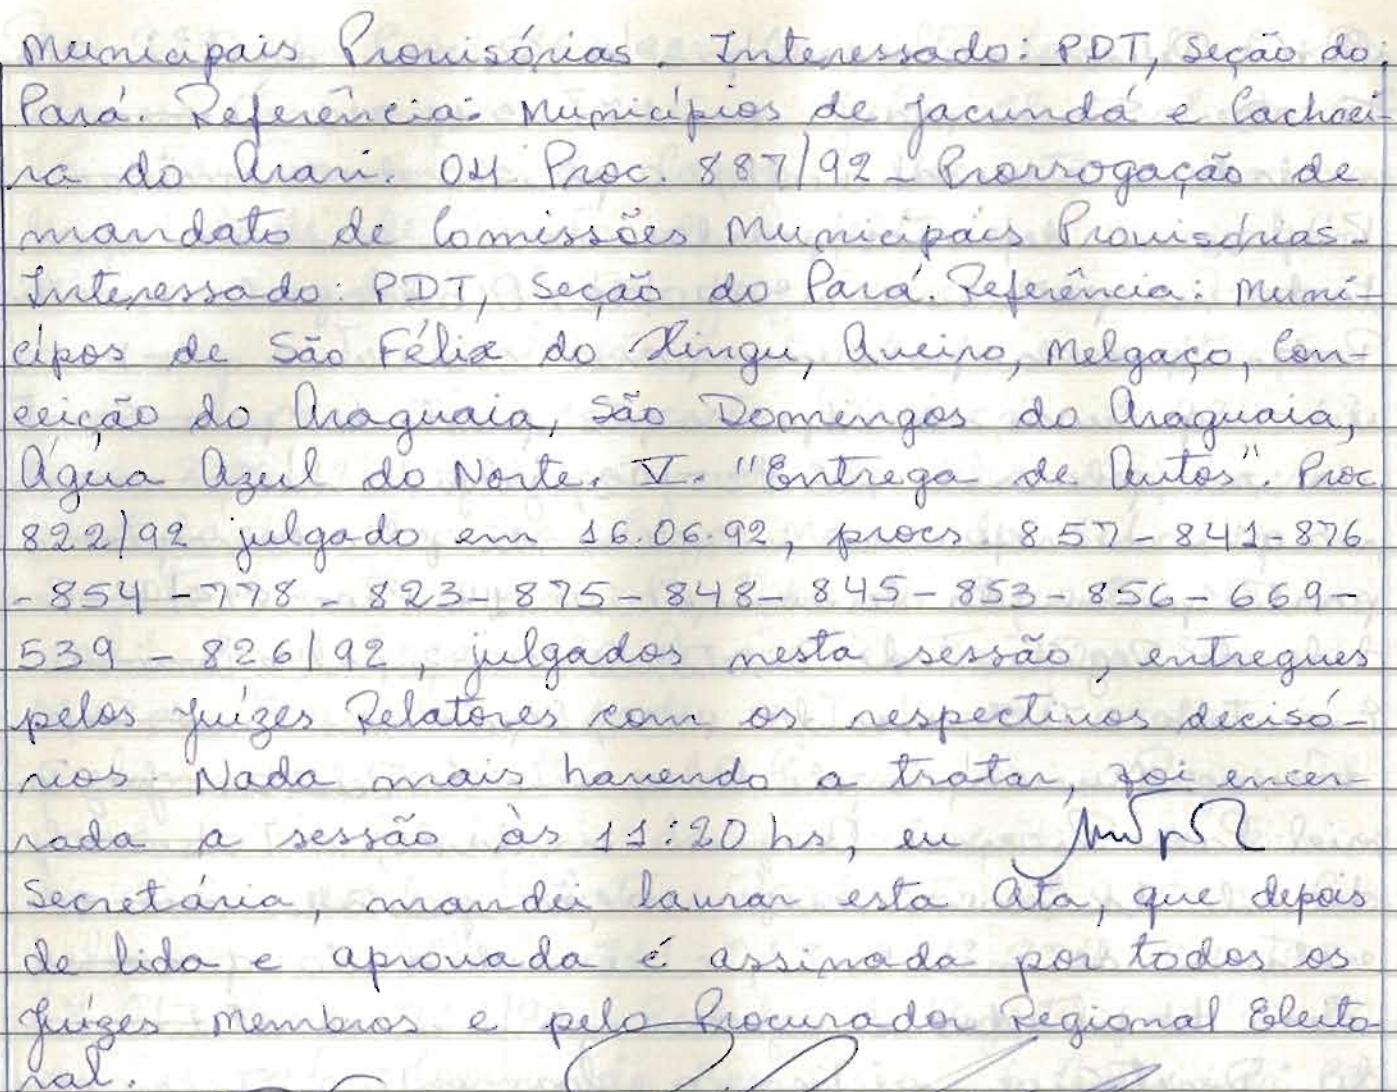 Municipais Provisórias. Interessado: PDT, Seção do
Pará. Referência: Municípios de Jacundá e Cachoei-
ra do Arari. 04 Proc. 887/92 - Prorrogação de
mandato de Comissões Municipais Provisórias.
Interessado: PDT, Seção do Pará. Referência: Muni-
cípos de São Félix do Xingu, Aveiro, Melgaço, Con-
ceição do Araguaia, São Domingos do Araguaia,
Água Azul do Norte. V. "Entrega de Autos". Proc
822/92 julgado em 16.06.92, procs. 857-841-876
-854-778-823-875-848-845-853-856-669-
539-826/92, julgados nesta sessão, entregues
pelos Juízes Relatores com os respectivos decisó-
rios. Nada mais havendo a tratar, foi encer-
rada a sessão às 11:20 hs, eu
Secretária, mandei lavrar esta Ata, que depois
de lida e aprovada é assinada por todos os
Juízes Membros e pelo Procurador Regional Eleito
ral.